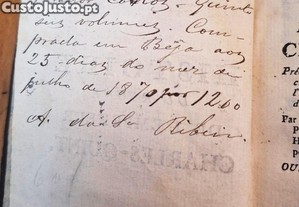 CustoJusto.pt
Carlos Quinto
seis volumes. Com-
prada em Béja aos
25 dias do mez de
julho de 1870 por 1200
A. da Sa Ribeir.
CHARLES-QUINT
C
Pré
l'
d
Par
H
P
OU